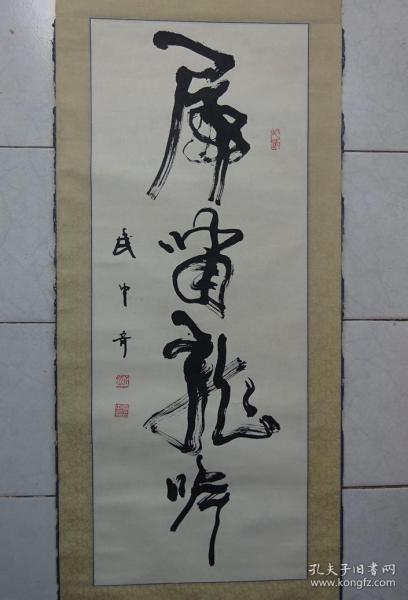 虎啸龙吟
武中奇
孔夫子旧书网
www.kongfz.com